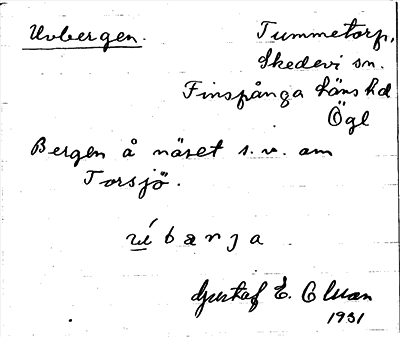 Uvbergen.
Tummetorp,
Skedevi sn.
Finspånga läns hd
Ögl
Bergen å näset s.v. om
Torsjö.
Gustaf E. Olsson
1931